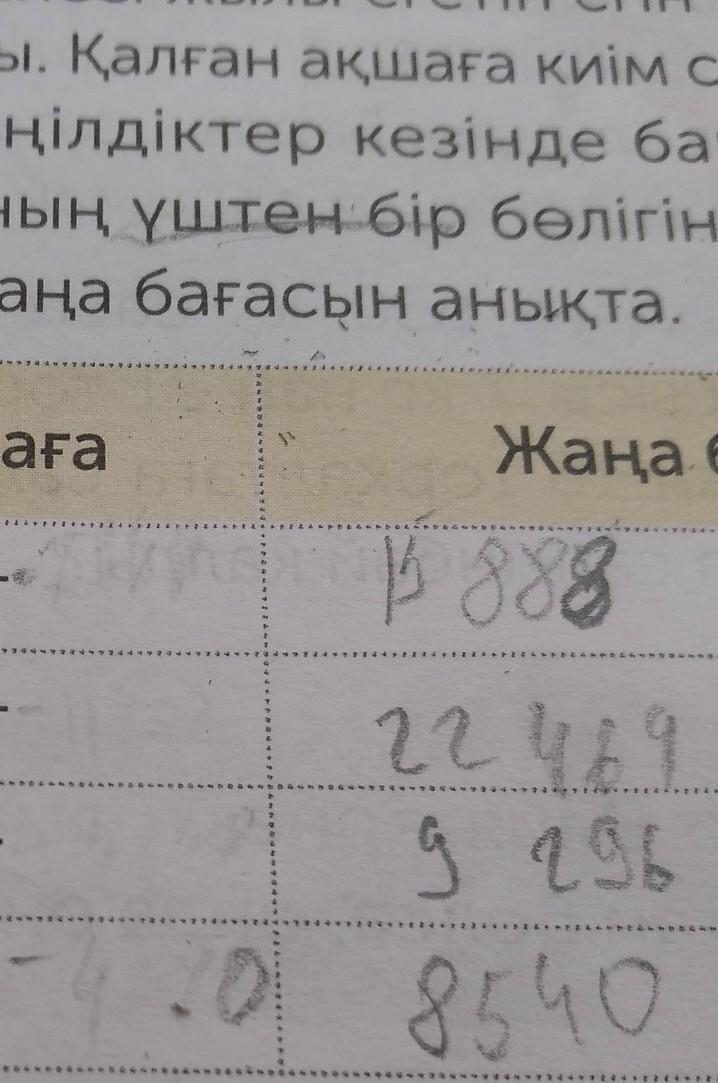 ы. Қалған ақшаға киім с
ңілдіктер кезінде ба
ның үштен бір бөлігін
аңа бағасын анықта.
аға Жаңа б
888
22 469
9 296
8540